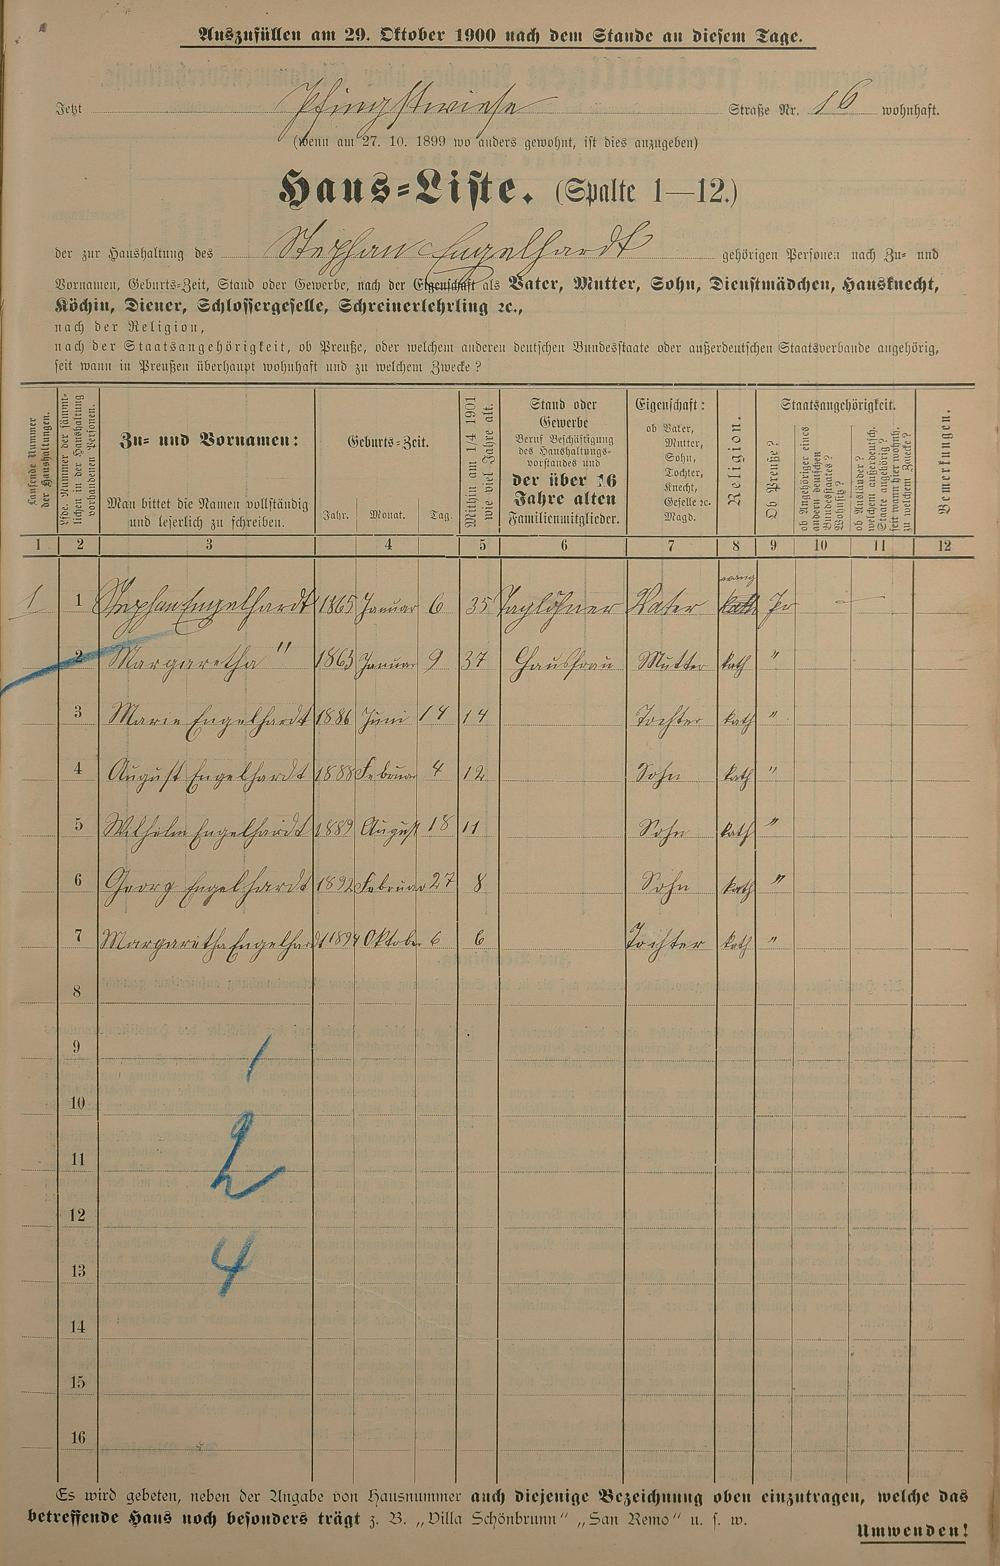 Auszufüllen am 29. Oktober 1900 nach dem Stande an diesem Tage.
Jetzt Pfingstwiese Straße Nr. 16 wohnhaft.
(wenn am 27. 10. 1899 wo anders gewohnt, ist dies anzugeben)
Haus=Liste. (Spalte 1—12.)
der zur Haushaltung des Stephan Engelhardt gehörigen Personen nach Zu= und
Vornamen, Geburts=Zeit, Stand oder Gewerbe, nach der Eigenschaft als Vater, Mutter, Sohn, Dienstmädchen, Hausknecht,
Köchin, Diener, Schlossergeselle, Schreinerlehrling ꝛc.,
nach der Religion,
nach der Staatsangehörigkeit, ob Preuße, oder welchem anderen deutschen Bundesstaate oder außerdeutschen Staatsverbande angehörig,
seit wann in Preußen überhaupt wohnhaft und zu welchem Zwecke?
Laufende Nummer
der Haushaltungen.
Lfde. Nummer der sämmt-
lichen in der Haushaltung
vorhandenen Personen.
Zu= und Vornamen:
Man bittet die Namen vollständig
und leserlich zu schreiben.
Geburts=Zeit.
Jahr. Monat. Tag.
Mithin am 1/4 1901
wie viel Jahre alt.
Stand oder
Gewerbe
Beruf Beschäftigung
des Haushaltungs-
vorstandes und
der über 16
Jahre alten
Familienmitglieder.
Eigenschaft:
ob Vater,
Mutter,
Sohn,
Tochter,
Knecht,
Geselle ꝛc.
Magd.
Religion.
Staatsangehörigkeit.
Ob Preuße?
ob Angehöriger eines
andern deutschen
Bundesstaates?
Wohnsitz?
ob Ausländer?
welchem außerdeutsch.
Staate angehörig?
seit wann hier wohnh.
zu welchem Zwecke?
Bemerkungen.
1 2 3 4 5 6 7 8 9 10 11 12
1 1 Stephan Engelhardt 1865 Januar 6 35 Taglöhner Vater evang kath Pr —
2 Margaretha " 1863 Januar 9 37 Hausfrau Mutter kath "
3 Marie Engelhardt 1886 Juni 14 14 Tochter kath "
4 August Engelhardt 1888 Februar 4 12 Sohn kath "
5 Wilhelm Engelhardt 1889 August 18 11 Sohn kath "
6 Georg Engelhardt 1892 Februar 27 8 Sohn kath "
7 Margaretha Engelhardt 1894 Oktober 6 6 Tochter kath "
8
9
1
10
11
2
12
13
4
14
15
16
Es wird gebeten, neben der Angabe von Hausnummer auch diejenige Bezeichnung oben einzutragen, welche das
betreffende Haus noch besonders trägt z. B. „Villa Schönbrunn“ „San Remo“ u. s. w.
Umwenden!